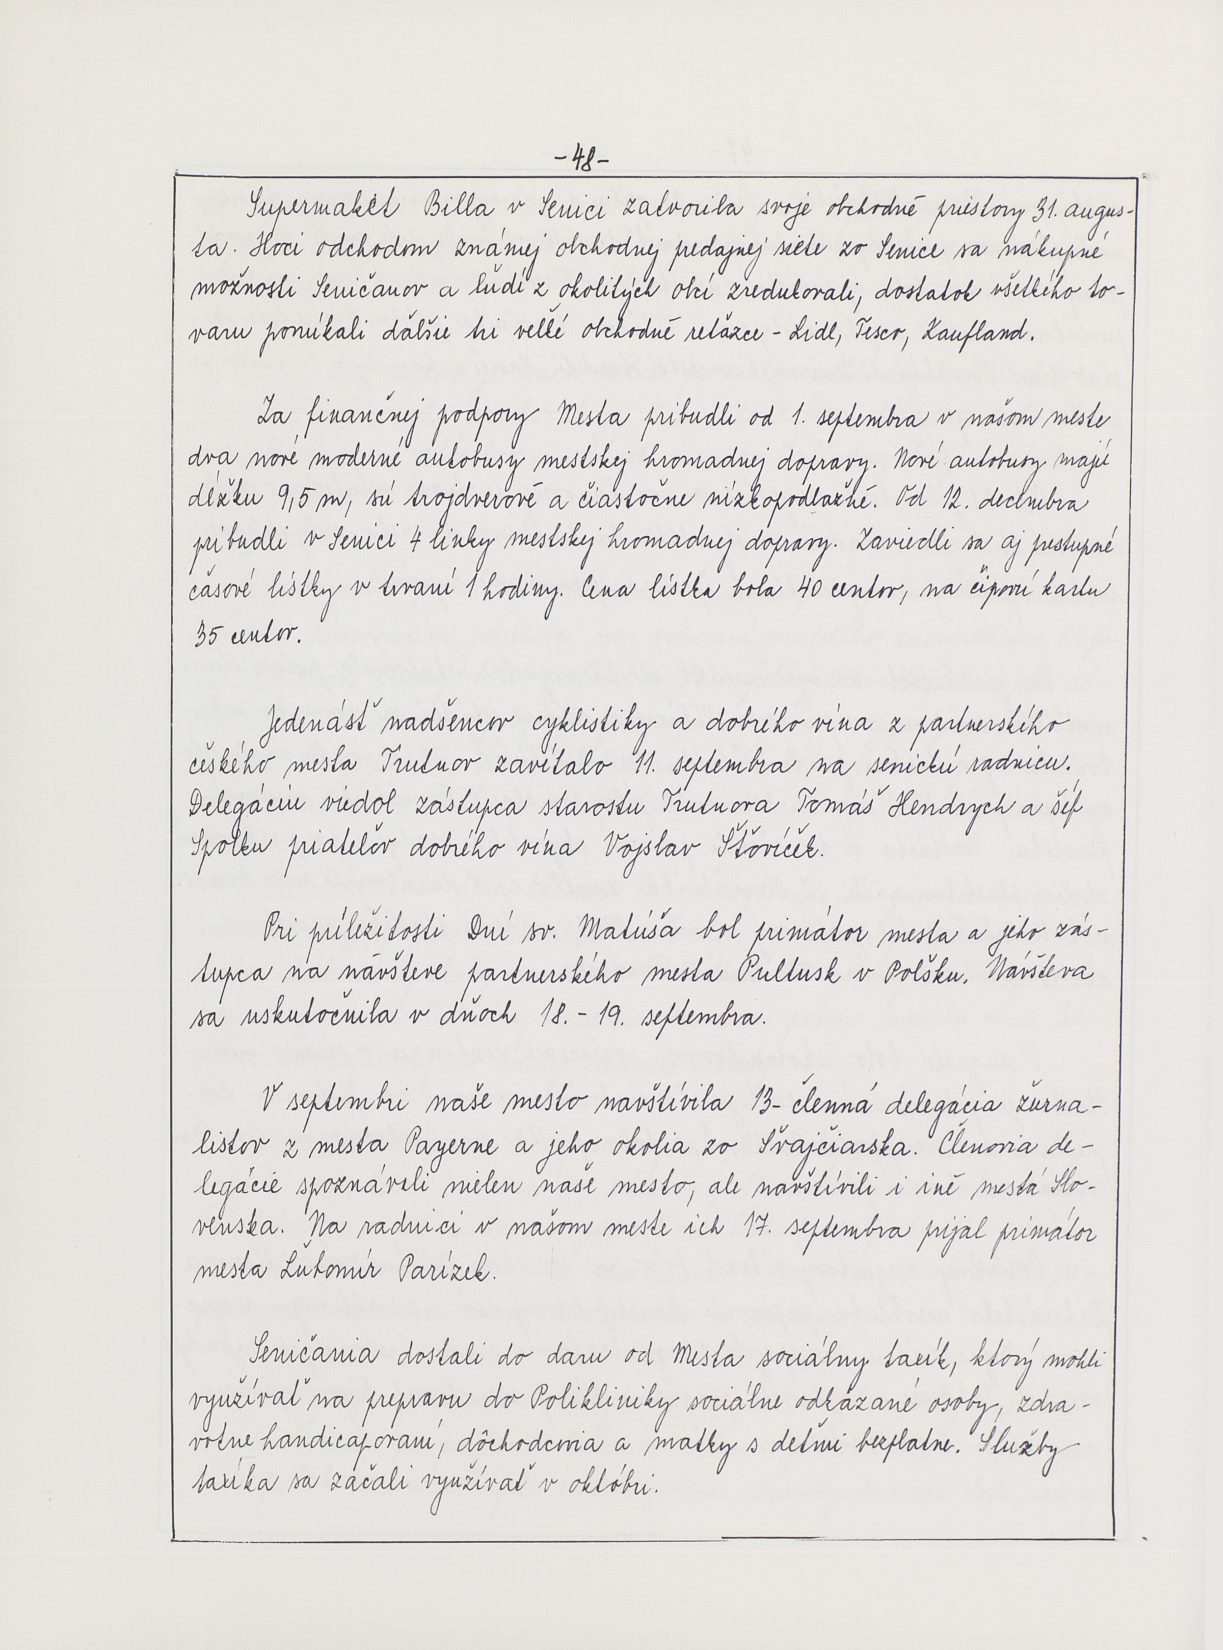 -48-
Supermakét Billa v Senici zatvorila svoje obchodné priestory 31. augus-
ta. Hoci odchodom známej obchodnej predajnej siete zo Senice sa nákupné
možnosti Seničanov a ľudí z okolitých obcí zredukovali, dostatok všetkého to-
varu ponúkali ďalšie tri veľké obchodné reťazce - Lidl, Tesco, Kaufland.
Za finančnej podpory Mesta pribudli od 1. septembra v našom meste
dva nové moderné autobusy mestskej hromadnej dopravy. Nové autobusy majú
dĺžku 9,5 m, sú trojdverové a čiastočne nízkopodlažné. Od 12. decembra
pribudli v Senici 4 linky mestskej hromadnej dopravy. Zaviedli sa aj prestupné
časové lístky v trvaní 1 hodiny. Cena lístka bola 40 centov, na čipovú kartu
35 centov.
Jedenásť nadšencov cyklistiky a dobrého vína z partnerského
českého mesta Trutnov zavítalo 11. septembra na senickú radnicu.
Delegáciu viedol zástupca starostu Trutnova Tomáš Hendrych a šéf
Spolku priateľov dobrého vína Vojslav Šťovíček.
Pri príležitosti Dní sv. Matúša bol primátor mesta a jeho zás-
tupca na návšteve partnerského mesta Pultusk v Poľsku. Návšteva
sa uskutočnila v dňoch 18. - 19. septembra.
V septembri naše mesto navštívila 13- členná delegácia žurna-
listov z mesta Payerne a jeho okolia zo Švajčiarska. Členovia de-
legácie spoznávali nielen naše mesto, ale navštívili i iné mestá Slo-
venska. Na radnici v našom meste ich 17. septembra prijal primátor
mesta Ľubomír Parízek.
Seničania dostali do daru od Mesta sociálny taxík, ktorý mohli
využívať na prepravu do Polikliniky sociálne odkázané osoby, zdra-
votne handicapovaní, dôchodcovia a matky s deťmi bezplatne. Služby
taxíka sa začali využívať v októbri.